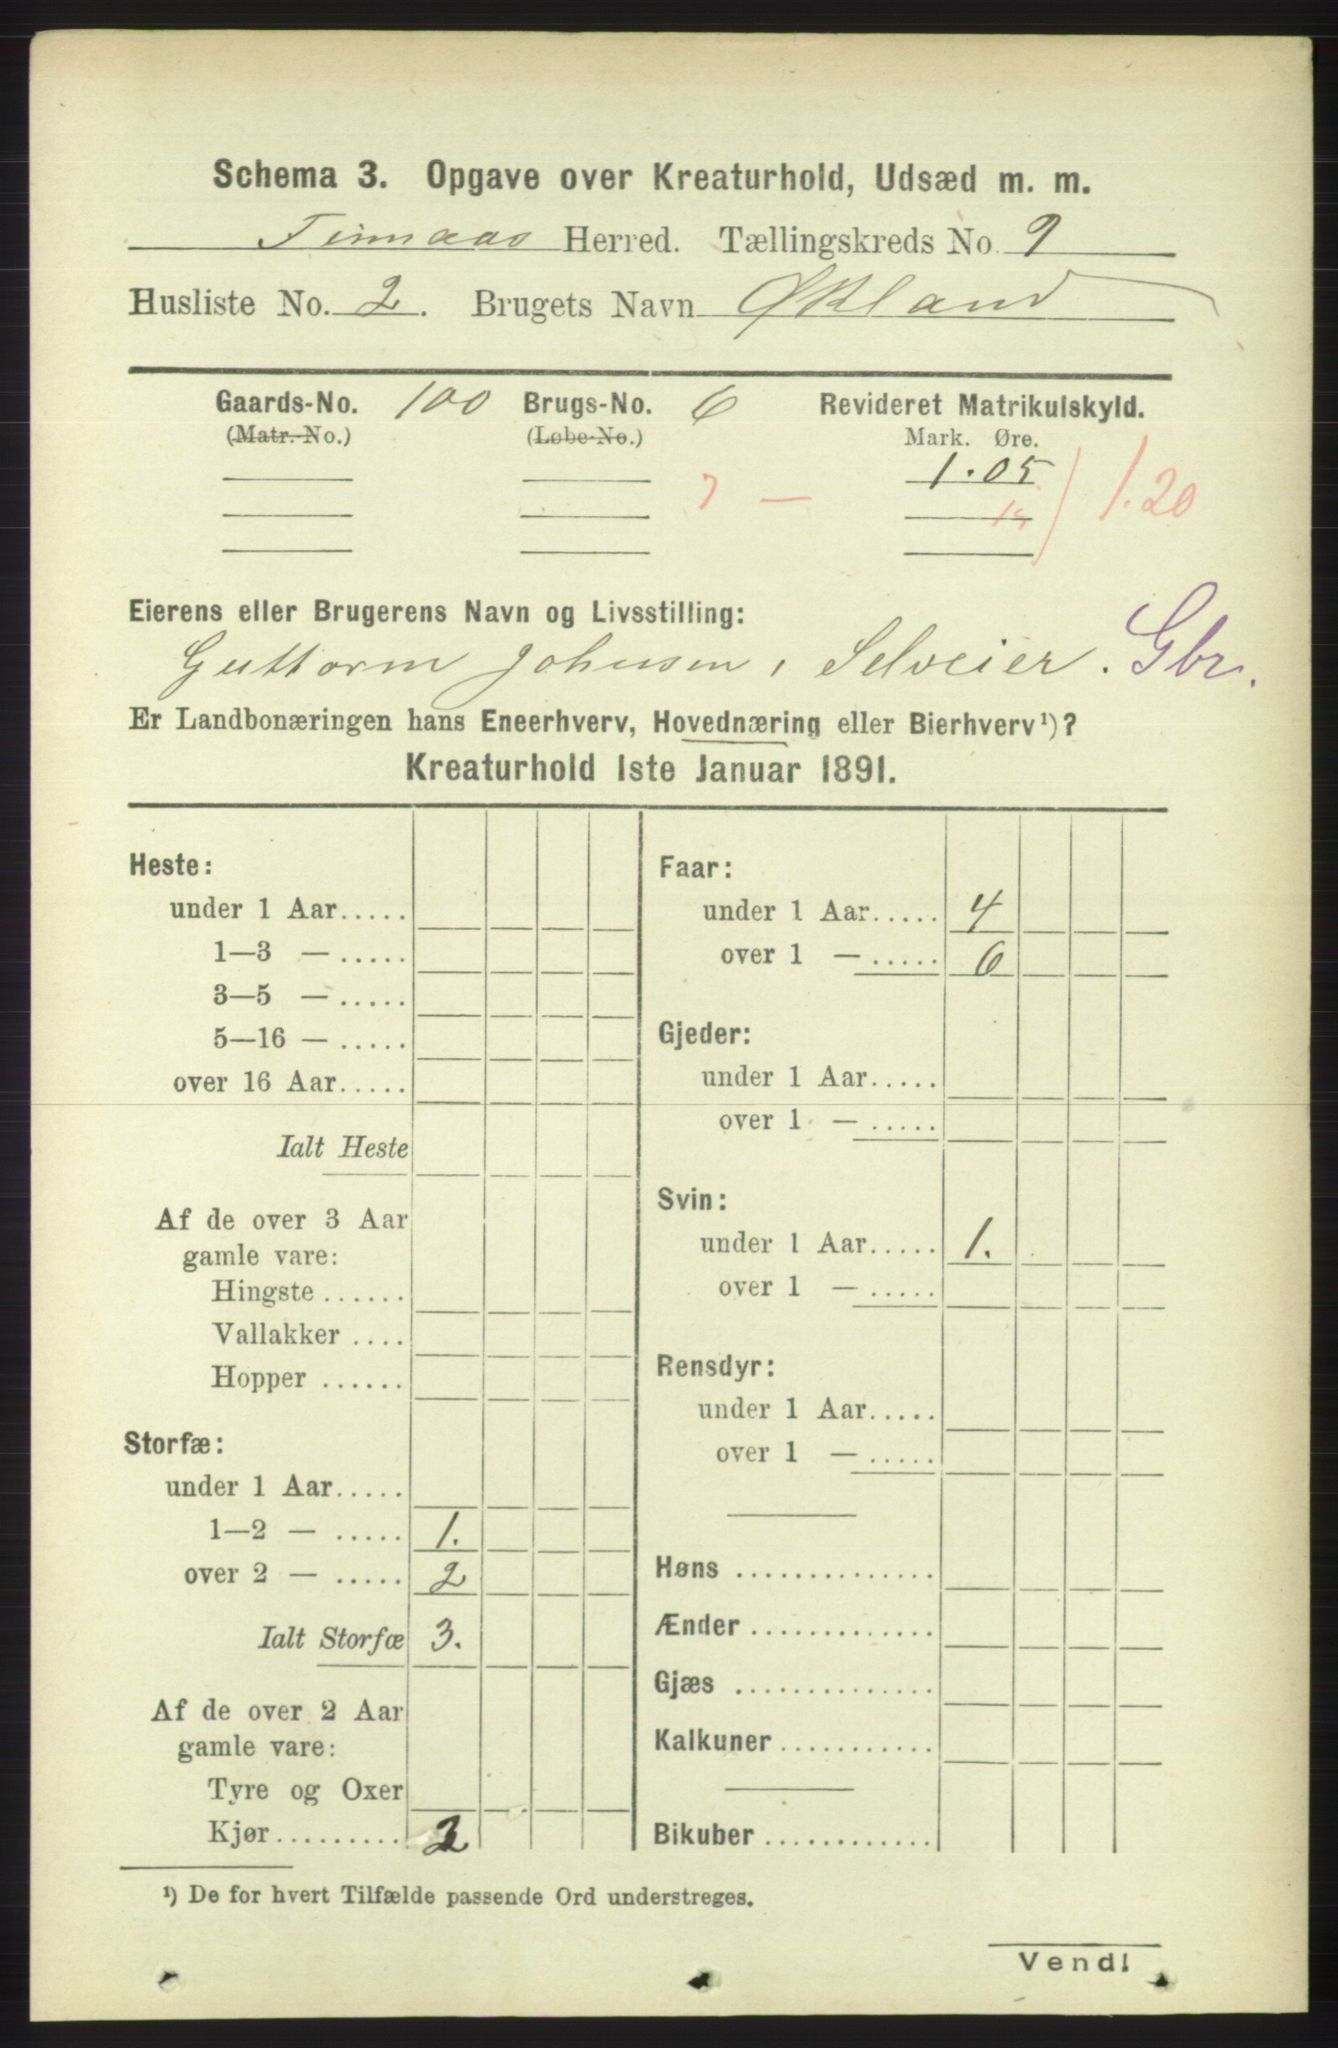 Schema 3. Opgave over Kreaturhold, Udsæd m. m.
Finnaas Herred. Tællingskreds No. 9
Husliste No. 2. Brugets Navn Økland
Gaards-No. 100 Brugs-No. 6 Revideret Matrikulskyld.
(Matr.-No.) (Løbe-No.) Mark. Øre.
1.05
7 — 15 1.20
Eierens eller Brugerens Navn og Livsstilling:
Guttorm Johnsen, Selveier. Gbr.
Er Landbonæringen hans Eneerhverv, Hovednæring eller Bierhverv¹)?
Kreaturhold 1ste Januar 1891.
Heste:
under 1 Aar.....
1—3 — .....
3—5 — .....
5—16 — .....
over 16 Aar.....
Ialt Heste
Af de over 3 Aar
gamle vare:
Hingste ......
Vallakker ....
Hopper ......
Storfæ:
under 1 Aar.....
1—2 — ..... 1.
over 2 — ..... 2
Ialt Storfæ 3.
Af de over 2 Aar
gamle vare:
Tyre og Oxer
Kjør......... 2
Faar:
under 1 Aar..... 4
over 1 — ..... 6
Gjeder:
under 1 Aar.....
over 1 — .....
Svin:
under 1 Aar..... 1.
over 1 — .....
Rensdyr:
under 1 Aar.....
over 1 — .....
Høns ..............
Ænder .............
Gjæs ..............
Kalkuner ...........
Bikuber ............
¹) De for hvert Tilfælde passende Ord understreges.
Vend!